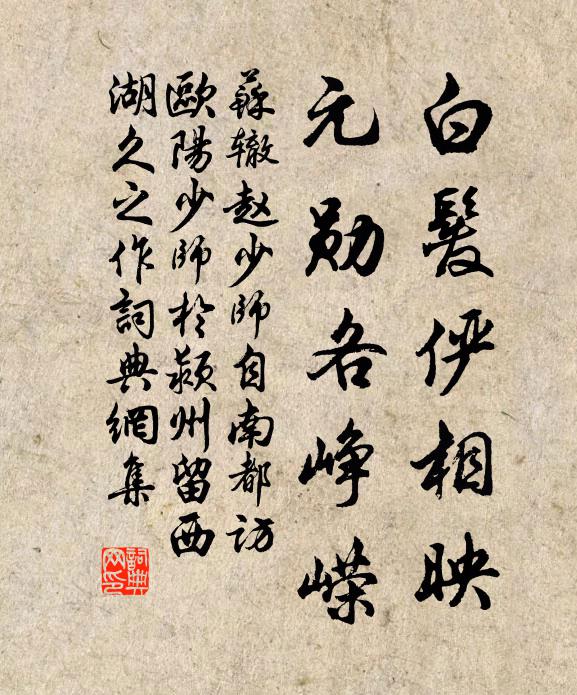 白髮俨相映
元勋各峥嵘
蘇辙赵少師自南都访
歐陽少師於颍州留西
湖久之作詞典網集
詞典网印